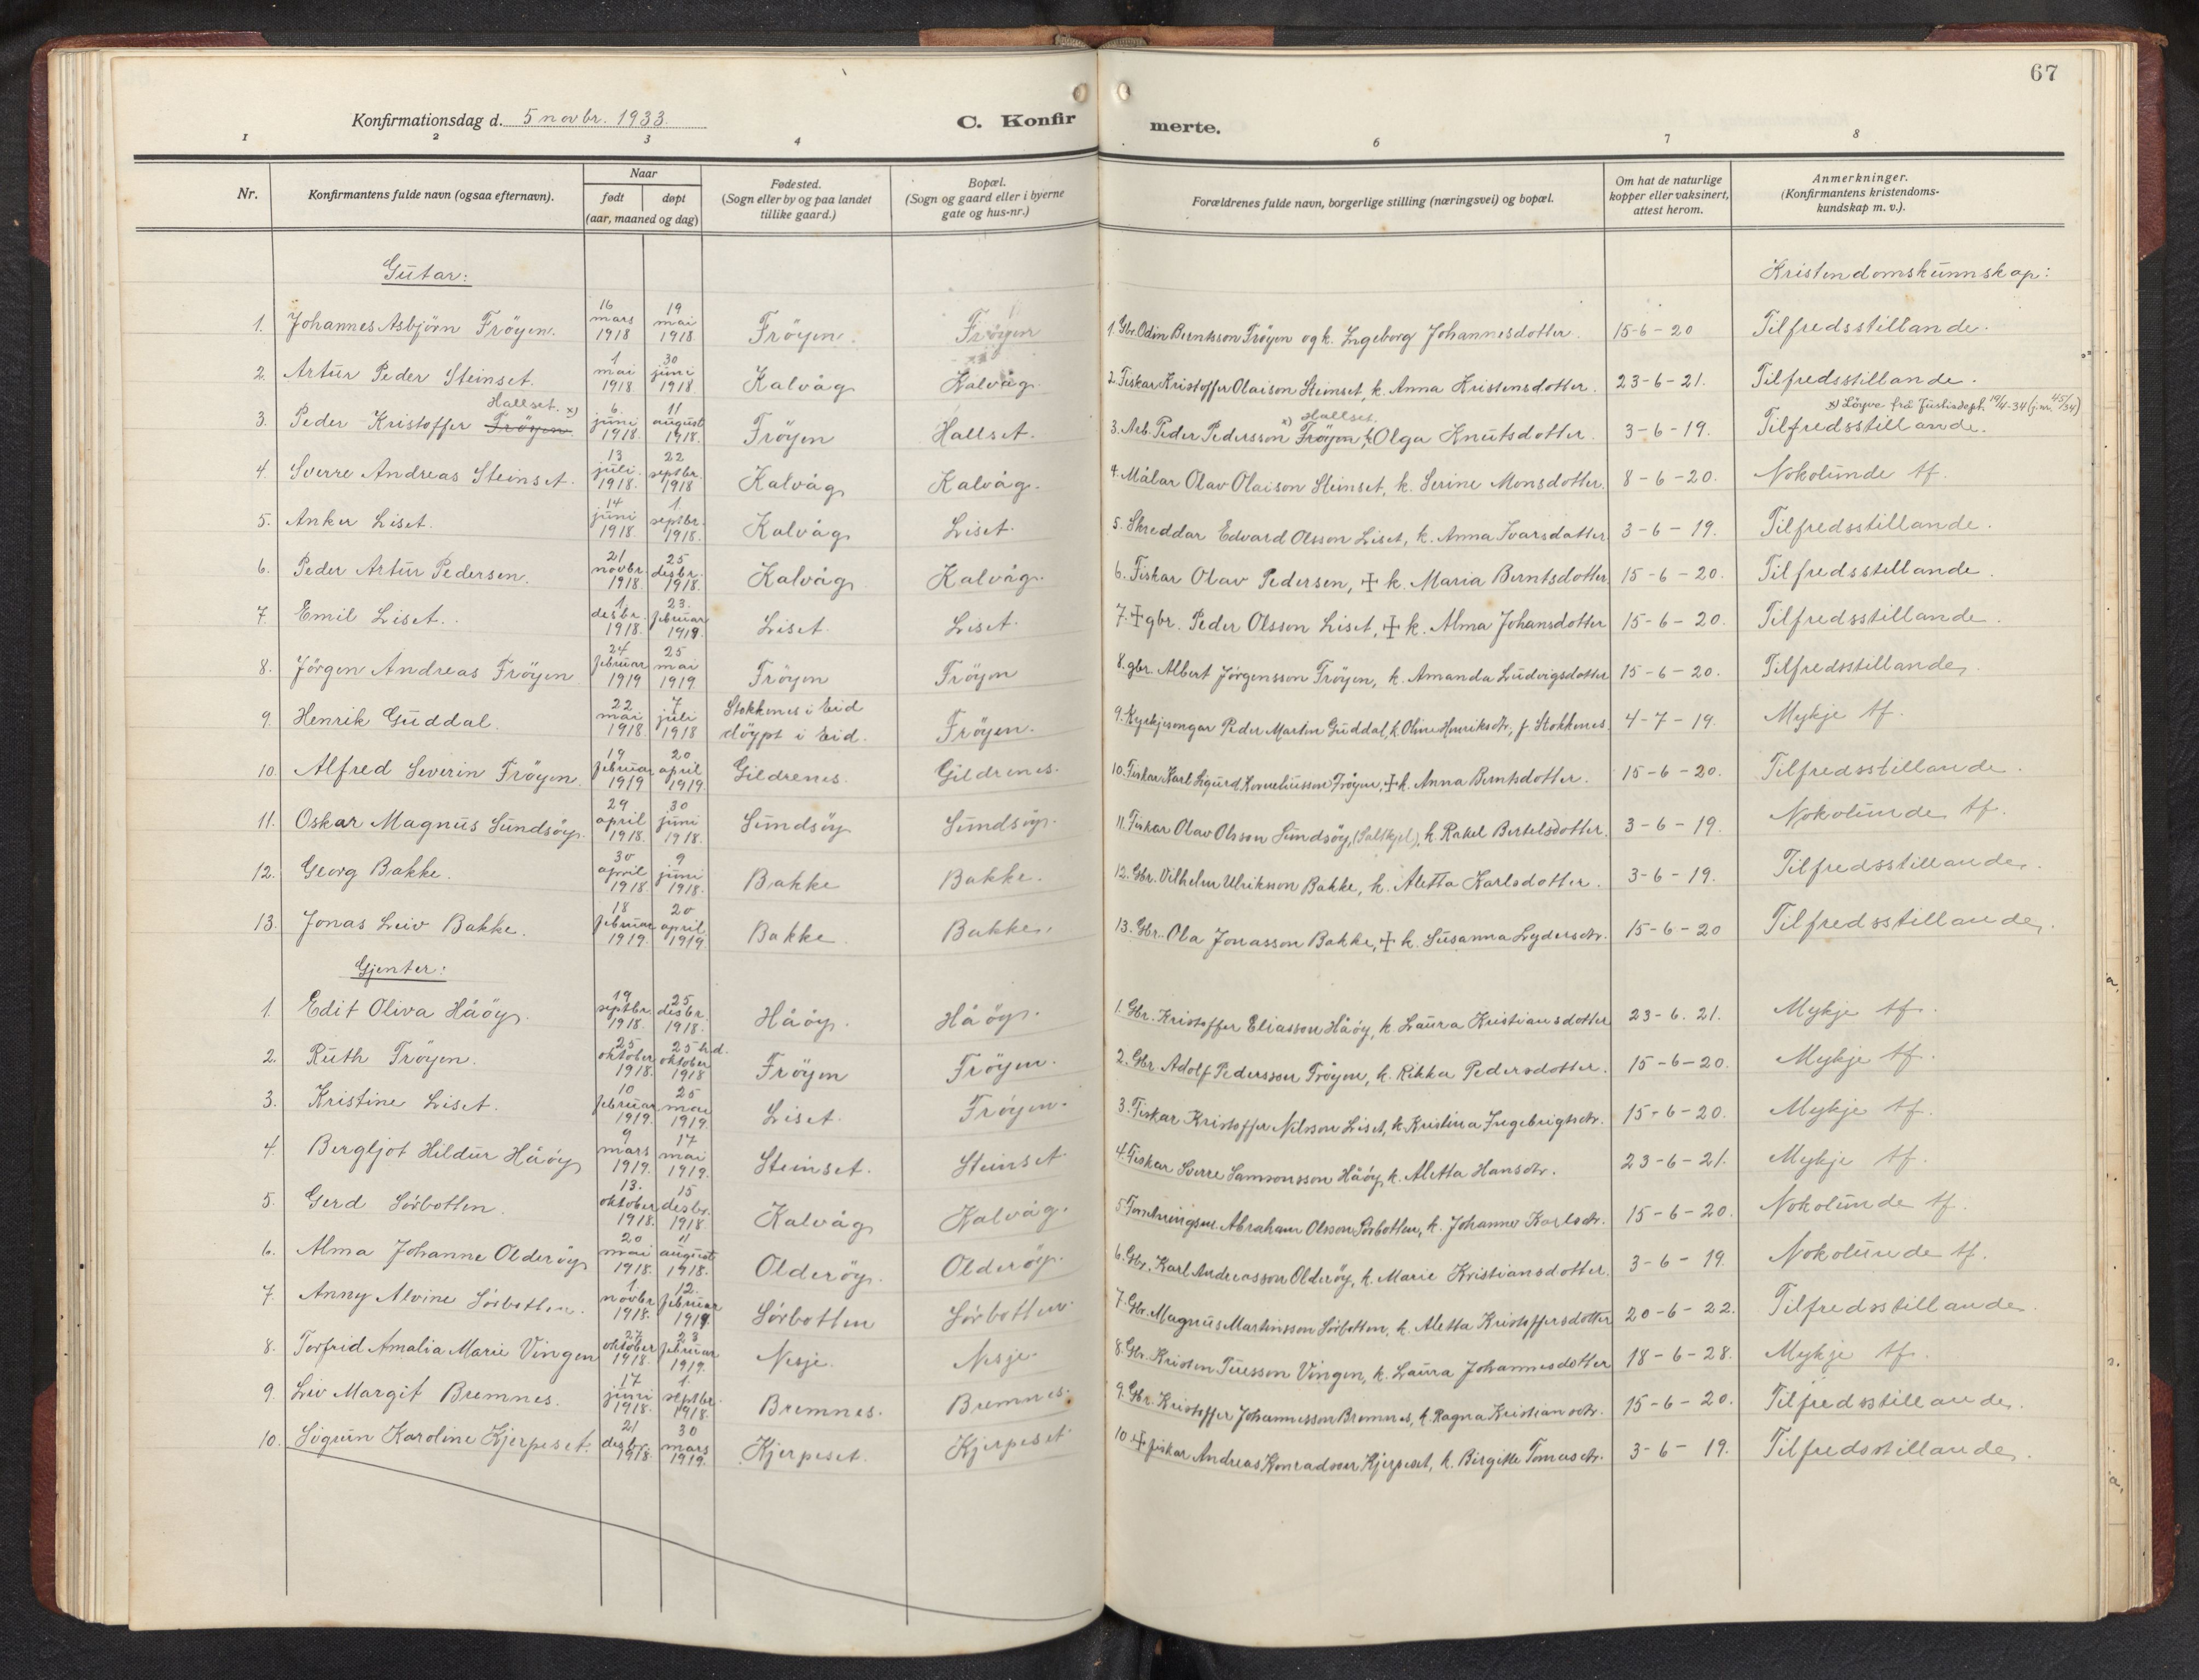 67
Konfirmationsdag d. 5 novbr. 1933.
C. Konfirmerte.
1 2 3 4 6 7 8
Nr.
Konfirmantens fulde navn (ogsaa efternavn).
Naar
født
døpt
(aar, maaned og dag)
Fødested.
(Sogn eller by og paa landet
tillike gaard.)
Bopæl.
(Sogn og gaard eller i byerne
gate og hus-nr.)
Forældrenes fulde navn, borgerlige stilling (næringsvei) og bopæl.
Om hat de naturlige
kopper eller vaksinert,
attest herom.
Anmerkninger.
(Konfirmantens kristendoms-
kundskap m. v.).
Gutar:
Kristendomskunnskap:
1. Johannes Asbjörn Fröyen. 16 mars 1918 19 mai 1918 Fröyen. Fröyen 1. Gbr. Odin Berntsson Fröyen og k. Ingeborg Johannesdotter. 15-6-20 Tilfredsstillande.
2. Artur Peder Steinset. 1 mai 1918 30 juni 1918 Kalvåg Kalvåg. 2. Fiskar Kristoffer Olaison Steinset, k. Anna Kristensdotter. 23-6-21. Tilfredsstillande.
Hallset. x)
x) Hallset.
x) Löyve frå Justisdept. 19/4-34 (j.nr. 45/34)
3. Peder Kristoffer Fröyen 6. juni 1918 11 august 1918. Fröyen Hallset. 3. Arb. Peder Pedersson Fröyen, k. Olga Knutsdotter. 3-6-19. Tilfredsstillande.
4. Sverre Andreas Steinset. 13 juli 1918. 22 septbr. 1918 Kalvåg Kalvåg. 4. Målar Olav Olaison Steinset, k. Serine Monsdotter. 8-6-20. Nokolunde tf.
5. Anker Liset. 14 juni 1918 1. septbr. 1918. Kalvåg Liset. 5. Skreddar Edvard Olsson Liset, k. Anna Ivarsdatter 3-6-19. Tilfredsstillande.
6. Peder Artur Pedersen. 21 novbr. 1918 25 desbr. 1918. Kalvåg Kalvåg. 6. Fiskar Olav Pedersen, + k. Maria Berntsdotter 15-6-20. Tilfredsstillande.
7. Emil Liset. 1. desbr. 1918. 23. februar 1919. Liset. Liset. 7. + gbr. Peder Olsson Liset, + k. Alma Johansdotter 15-6-20. Tilfredsstillande.
8. Jörgen Andreas Fröyen 24 februar 1919 25 mai 1919 Fröyen Fröyen 8. gbr. Albert Jörgensson Fröyen, k. Amanda Ludvigsdotter 15-6-20. Tilfredsstillande.
9. Henrik Guddal. 22 mai 1918 7 juli 1918 Stokkenes i Eid döypt i Eid. Fröyen. 9. Kyrkjesongar Peder Martin Guddal, k. Oline Henriksdtr, f. Stokkenes 4-7-19. Mykje tf.
10. Alfred Severin Fröyen. 19 februar 1919 20 april 1919 Gildrenes. Gildrenes. 10. Fiskar Karl Sigurd Korneliusson Fröyen, + k. Anna Berntsdotter. 15-6-20. Tilfredsstillande.
11. Oskar Magnus Sundsöy. 29 april 1918. 30 juni 1918. Sundsöy Sundsöy. 11. Fiskar Olav Olsson Sundsöy, (Salskjel), k. Rakel Bertelsdotter. 3-6-19. Nokolunde tf.
12. Georg Bakke. 30 april 1918. 9 juni 1918. Bakke Bakke. 12. Gbr. Vilhelm Ulrikson Bakke, k. Aletta Karlsdotter. 3-6-19. Tilfredsstillande.
13. Jonas Leiv Bakke. 18 februar 1919. 20 april 1919 Bakke. Bakke. 13. Gbr. Ola Jonasson Bakke, + k. Susanna Lydersdtr. 15-6-20 Tilfredsstillande.
Gjenter:
1. Edit Oliva Håöy. 19 septbr. 1918. 25 desbr. 1918. Håöy. Håöy. 1. Gbr. Kristoffer Eliasson Håöy, k. Laura Kristiansdotter 23-6.21. Mykje tf.
2. Ruth Fröyen. 25 oktober 1918. 25 hd. oktober 1918 Fröyen Fröyen. 2. Gbr Adolf Pedersson Fröyen, k. Rikka Pedersdotter. 15-6-20. Mykje tf.
3. Kristine Liset. 10 februar 1919. 25 mai 1919. Liset. Fröyen. 3. Fiskar Kristoffer Nilsson Liset, k. Kristina Ingebrigtsdtr. 15-6-20. Mykje tf.
4. Bergljot Hildur Håöy 9 mars 1919. 17 mai 1919. Steinset. Steinset 4. Fiskar Sverre Samsonsson Håöy, k. Aletta Hansdtr. 23-6-21. Mykje tf.
5. Gerd Sörbotten. 13. oktober 1918. 15 desbr. 1918. Kalvåg Kalvåg. 5. Abraham Olsson Sörbotten, k. Johanne Karlsdtr. 15-6-20. Nokolunde tf.
6. Alma Johanne Olderöy 20 mai 1918. 11 august 1918. Olderöy. Olderöy. 6. Gbr. Karl Andreasson Olderöy, k. Marie Kristiansdotter. 3-6-19. Nokolunde tf.
7. Anny Alvine Sörbotten. 1. novbr 1918. 12. februar 1919 Sörbotten Sörbotten 7. Gbr. Magnus Martinsson Sörbotten, k. Aletta Kristoffersdotter 20-6-22. Tilfredsstillande.
8. Torfrid Amalia Marie Vingen 27 oktober 1918. 23 februar 1919. Nesje. Nesje. 8. Gbr. Kristen Tuesson Vingen, k. Laura Johannesdotter 18-6-28. Mykje tf.
9. Liv Margit Bremnes. 17 juni 1918. 1. septbr. 1918. Bremnes. Bremnes. 9. Gbr. Kristoffer Johannesson Bremnes, k. Ragna Kristiansdtr. 15-6-20. Tilfredsstillande.
10. Sigrun Karoline Kjerpeset. 21 desbr. 1918. 30 mars 1919. Kjerpeset. Kjerpeset 10. + fiskar Andreas Konradson Kjerpeset, k. Birgitte Tomasdtr. 3-6-19. Tilfredsstillande.